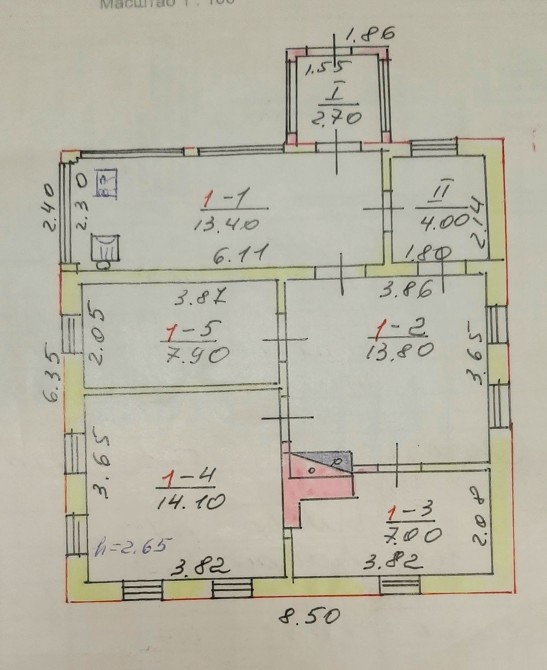 Масштаб 1 : 100
1.86
1.55
I
2.70
2.40
2.30
1-1
13.40
6.11
II
4.00
2.14
1.80
3.87
3.86
2.05
1-5
7.90
1-2
13.80
3.65
6.35
3.65
1-4
14.10
1-3
7.00
2.08
h=2.65
3.82
3.82
8.50